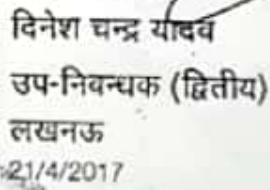 दिनेश चन्द्र यादव
उप-निबन्धक (द्वितीय)
लखनऊ
21/4/2017